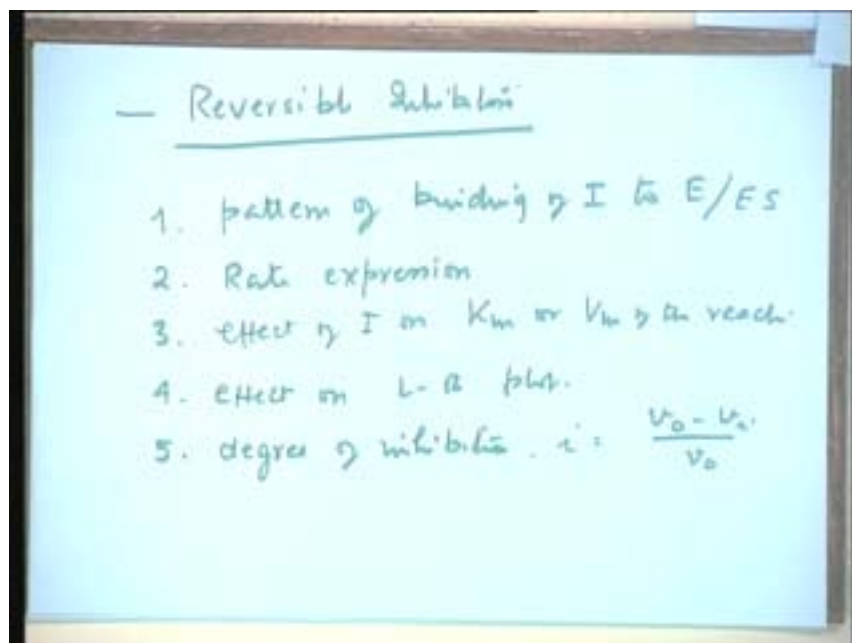 — Reversible Inhibition
1. pattern of binding of I to E/ES
2. Rate expression
3. effect of I on Km or Vm of the reach.
4. effect on L-B plot.
5. degree of inhibition. i = (v₀ - vᵢ) / v₀